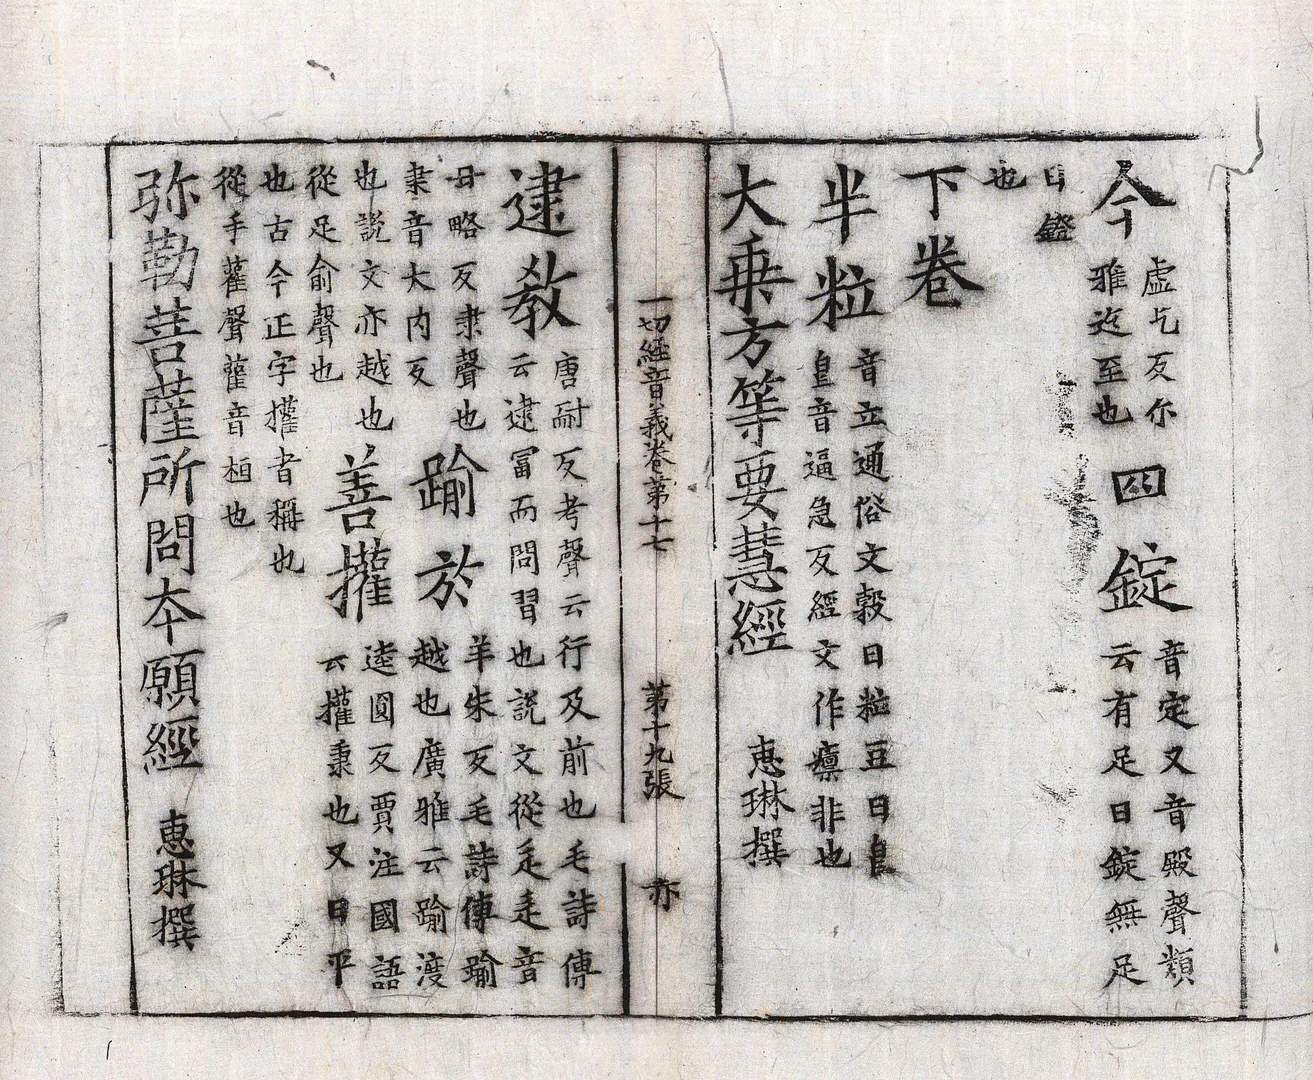 今
虛乞反尓
雅迄至也
四錠
音定又音殿聲類
云有足曰錠無足
曰鐙
也
下卷
半粒
音立通俗文糓曰粒豆曰皀
皇音逼急反經文作癝非也
大乗方等要慧經 惠琳撰
一切經音義卷第十七 第十九張 亦
逮教
唐耐反考聲云行及前也毛詩傳
云逮冨而問習也說文從辵辵音
丑略反隶聲也
隶音大内反
踰於
羊朱反毛詩傳踰
越也廣雅云踰渡
也說文亦越也
從足俞聲也
善㩲
逵圓反賈注國語
云㩲秉也又曰平
也古今正字㩲者稱也
從手雚聲雚音桓也
弥勒菩薩所問本願經 惠琳撰